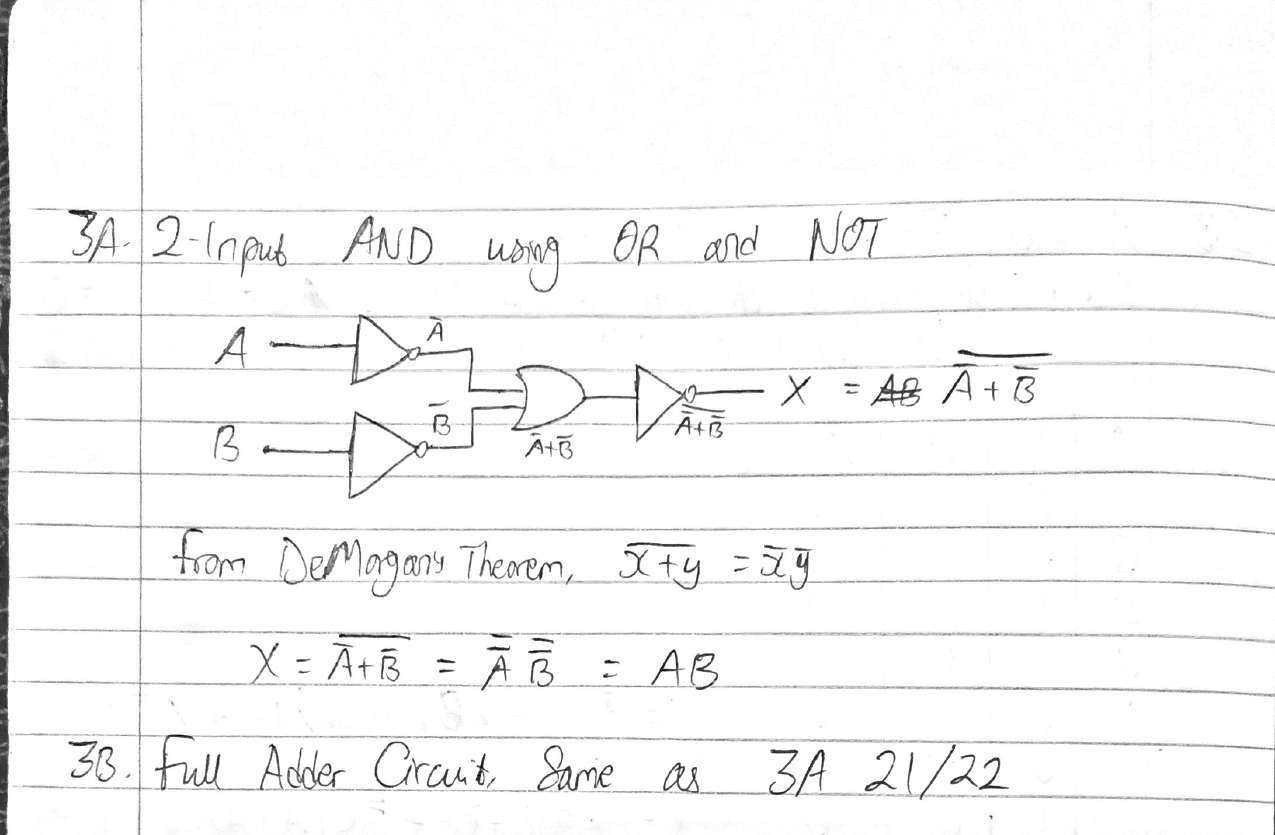 3A. 2-Input AND using OR and NOT
A Ā
X = A̶B̶ \overline{Ā + B̄}
B B̄ Ā+B̄ \overline{Ā+B̄}
from DeMogans Theorem, \overline{x+y} = x̄ȳ
X = \overline{Ā+B̄} = \overline{Ā} \overline{B̄} = AB
3B. Full Adder Circuit, Same as 3A 21/22